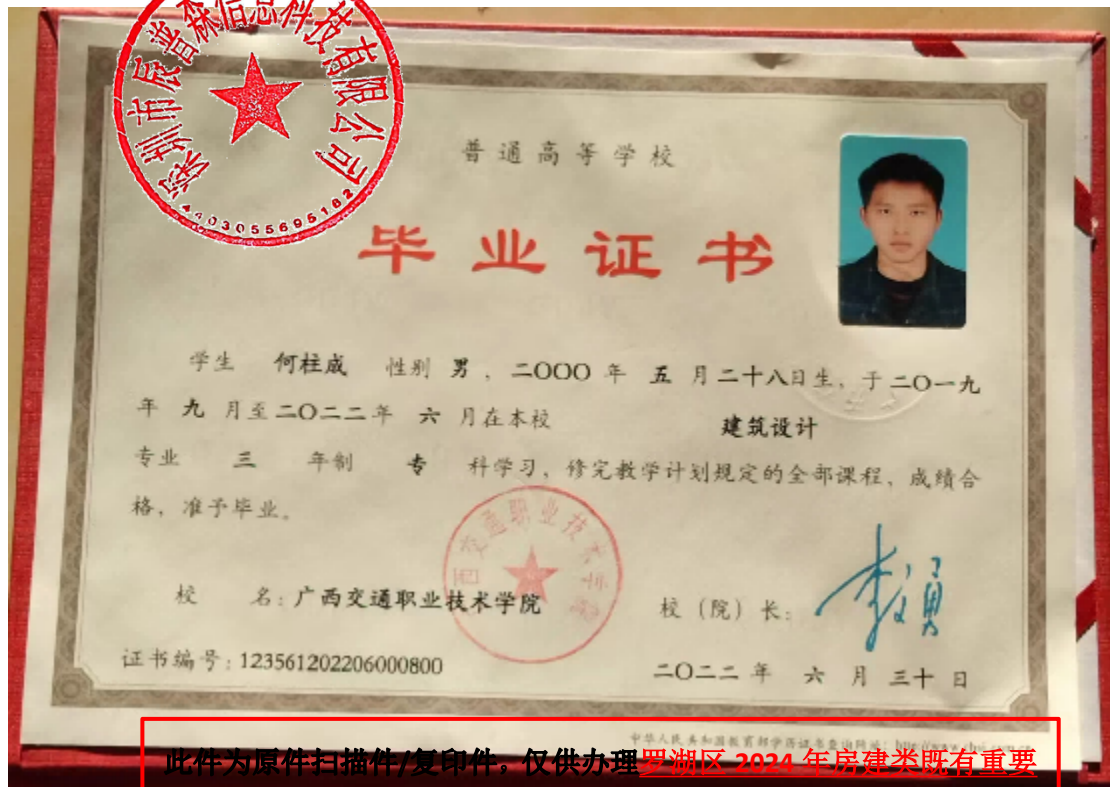 深圳市辰普森信息科技有限公司
4403055695182
普通高等学校
毕业证书
学生 何柱成 性别 男，二〇〇〇年 五 月二十八日生，于二〇一九
年 九 月至二〇二二年 六 月在本校 建筑设计
专业 三 年制 专 科学习，修完教学计划规定的全部课程，成绩合
格，准予毕业。
西交通职业技术学院
校 名：广西交通职业技术学院 校（院）长：
证书编号：123561202206000800 二〇二二年 六 月 三十 日
中华人民共和国教育部学历证书查询网址：
此件为原件扫描件/复印件，仅供办理罗湖区 2024 年房建类既有重要